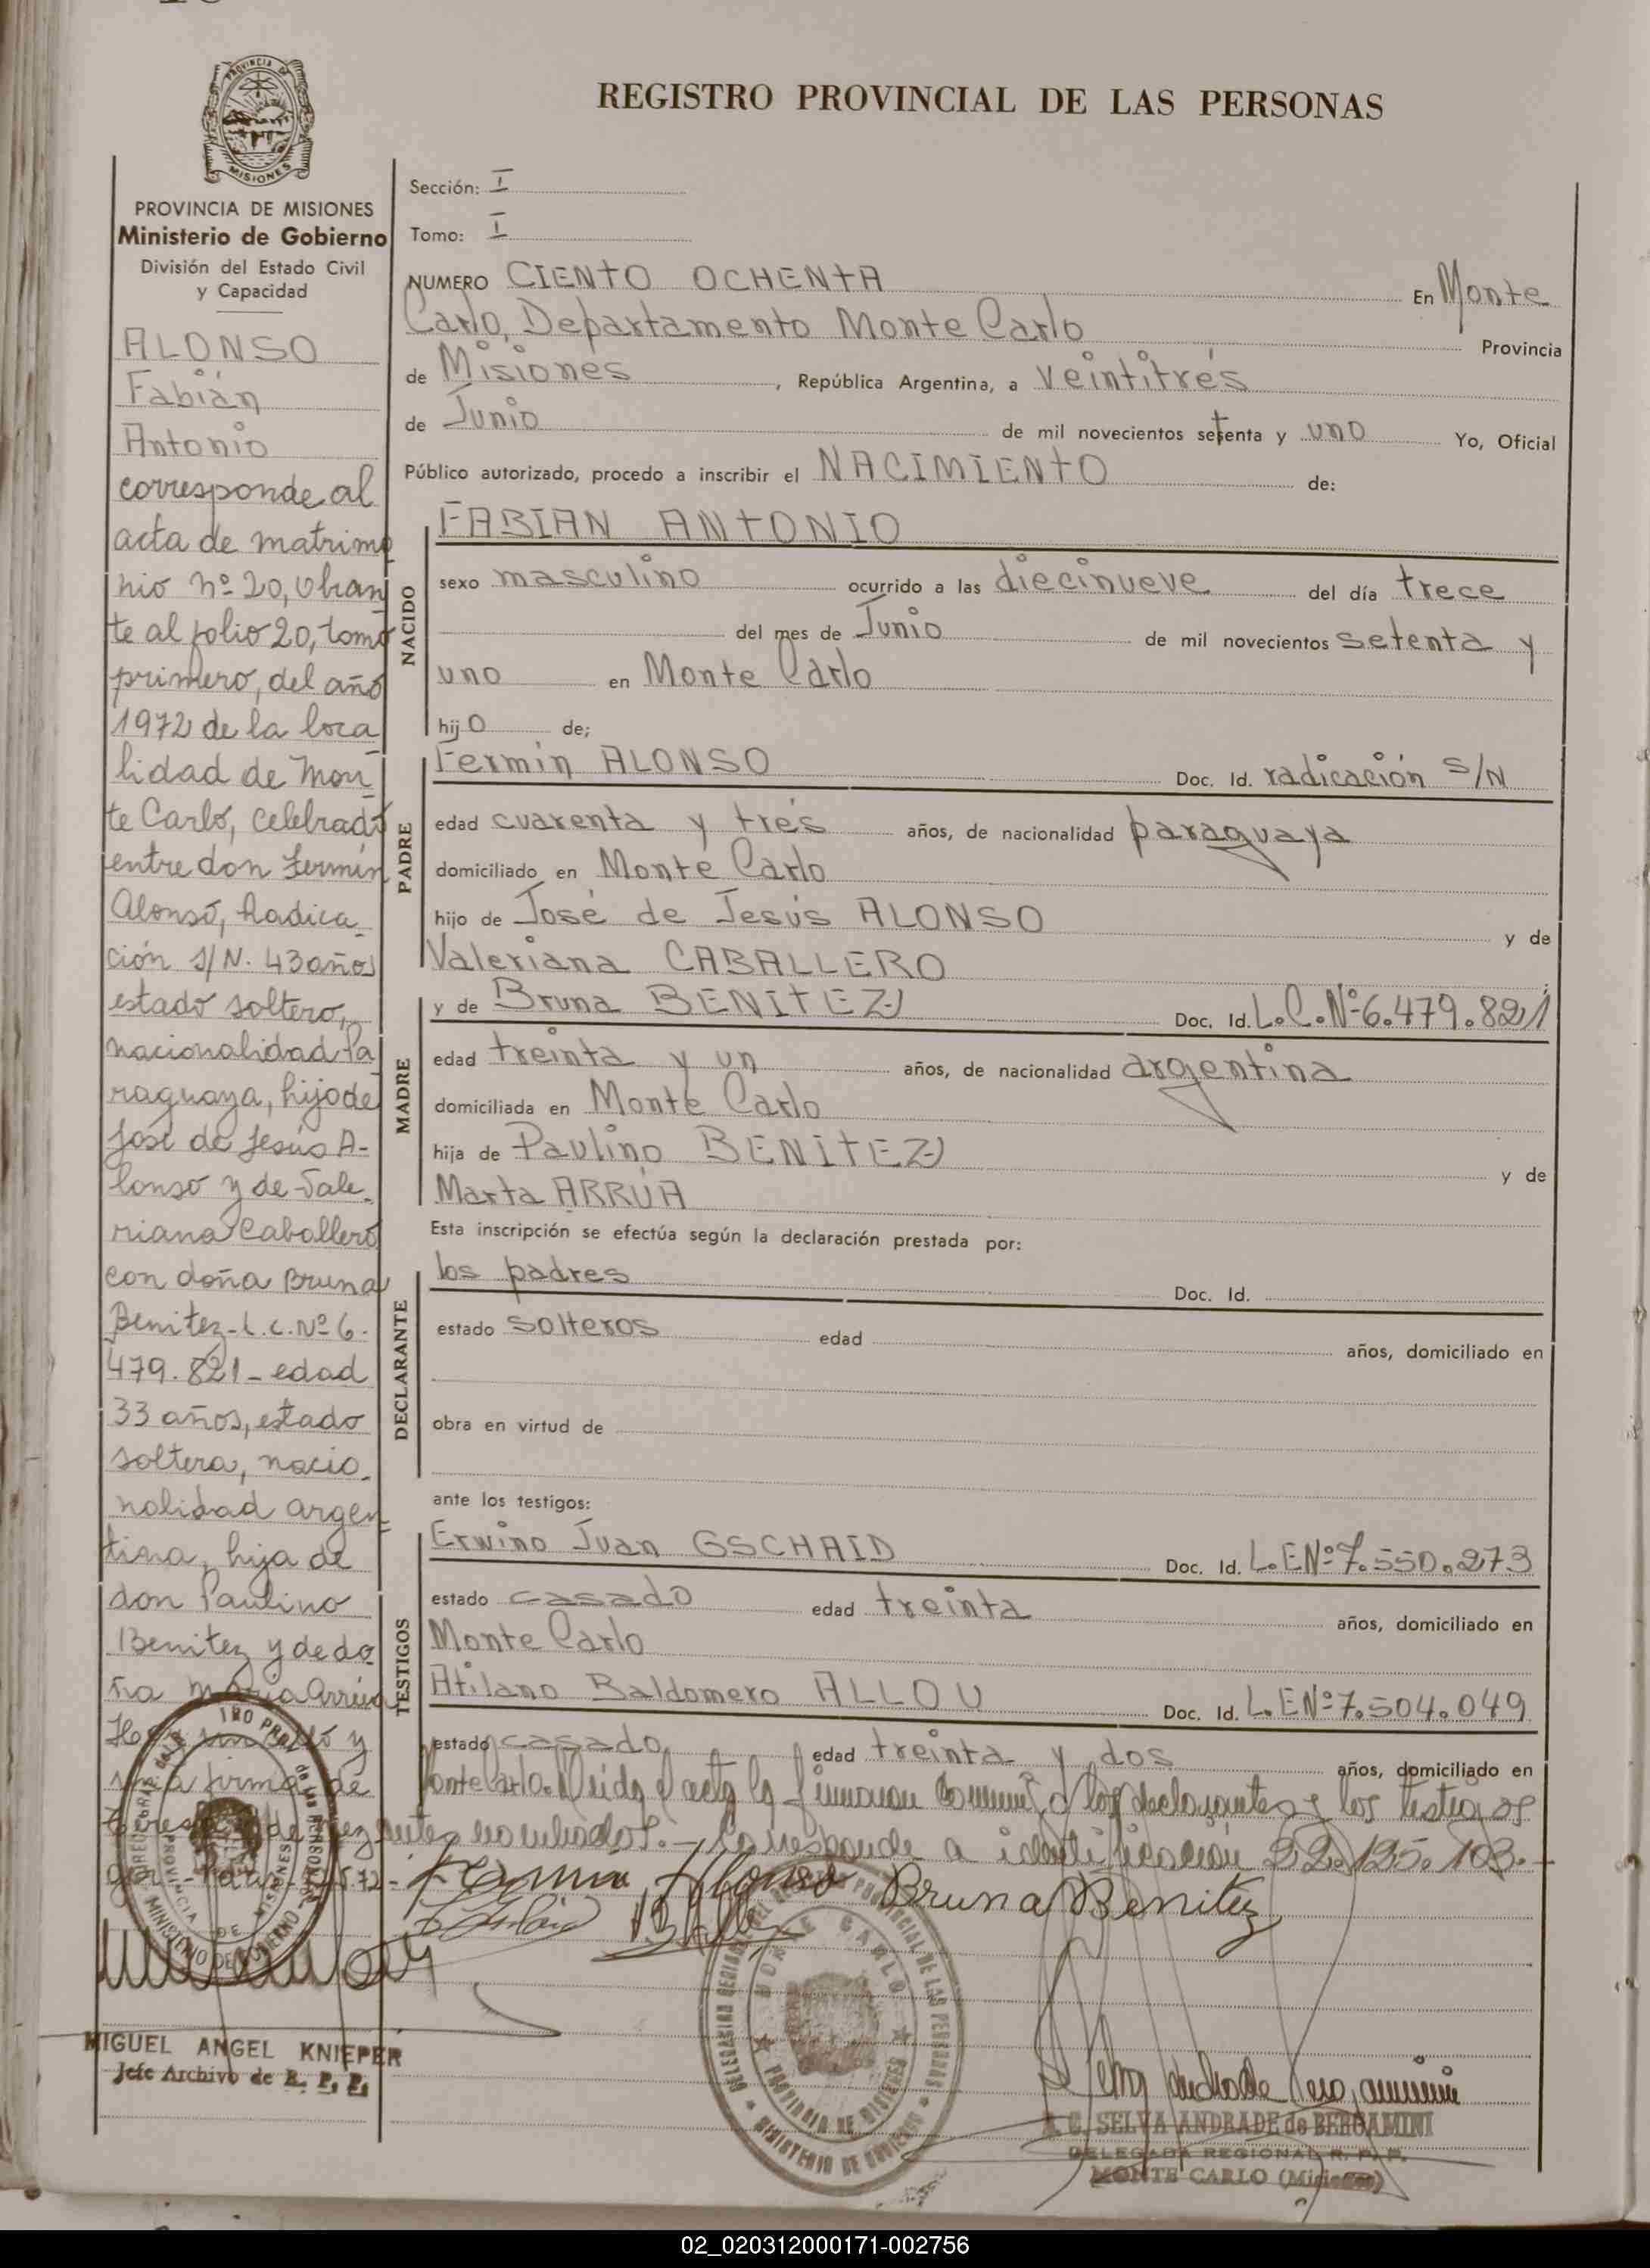 REGISTRO PROVINCIAL DE LAS PERSONAS
PROVINCIA DE MISIONES
Ministerio de Gobierno
División del Estado Civil
y Capacidad
ALONSO
Fabián
Antonio
corresponde al
acta de matrimo
nio nº 20, Obran
te al folio 20, tomo
primero, del año
1972 de la loca
lidad de Mon
te Carlo, celebrado
entre don Fermín
Alonso, Radica
ción S/N. 43 años
estado soltero,
nacionalidad Pa
raguaya, hijo de
José de Jesús A-
lonso y de Vale-
riana Caballero
con doña Bruna
Benitez - L.C. Nº 6.
479.821 - edad
33 años, estado
soltera, nacio-
nalidad argen
tina, hija de
don Paulino
Benitez y de do
ña Arrúa
MIGUEL ANGEL KNIEPER
Jefe Archivo de R. P. P.
Sección: I
Tomo: I
NUMERO CIENTO OCHENTA En Monte
Carlo, Departamento Monte Carlo Provincia
de Misiones, República Argentina, a veintitrés
de Junio de mil novecientos setenta y uno Yo, Oficial
Público autorizado, procedo a inscribir el NACIMIENTO de:
NACIDO
FABIAN ANTONIO
sexo masculino ocurrido a las diecinueve del día trece
del mes de Junio de mil novecientos setenta y
uno en Monte Carlo
hijo de;
PADRE
Fermín ALONSO Doc. Id. radicación S/N
edad cuarenta y trés años, de nacionalidad paraguaya
domiciliado en Monte Carlo
hijo de José de Jesús ALONSO y de
Valeriana CABALLERO
MADRE
y de Bruna BENITEZ Doc. Id. L.C.Nº6.479.821
edad treinta y un años, de nacionalidad argentina
domiciliada en Monte Carlo
hija de Paulino BENITEZ y de
Marta ARRÚA
Esta inscripción se efectúa según la declaración prestada por:
DECLARANTE
los padres Doc. Id.
estado solteros edad años, domiciliado en
obra en virtud de
ante los testigos:
TESTIGOS
Erwino Juan GSCHAID Doc. Id. L.ENº7.550.273
estado casado edad treinta años, domiciliado en
Monte Carlo
Atilano Baldomero ALLOU Doc. Id. L.ENº7.504.049
estado casado edad treinta y dos años, domiciliado en
Monte Carlo. Leida el acta la firmaron los declarantes y los testigos
antes nombrados.- Corresponde a identificación 22.125.103.-
Fermín Alonso Bruna Benitez
MONTE CARLO
PROVINCIA DE MISIONES
MINISTERIO DE GOBIERNO
A. C. SELVA ANDRADE de BERGAMINI
DELEGADA REGIONAL R. P. P.
MONTE CARLO (Misiones)
02_020312000171-002756